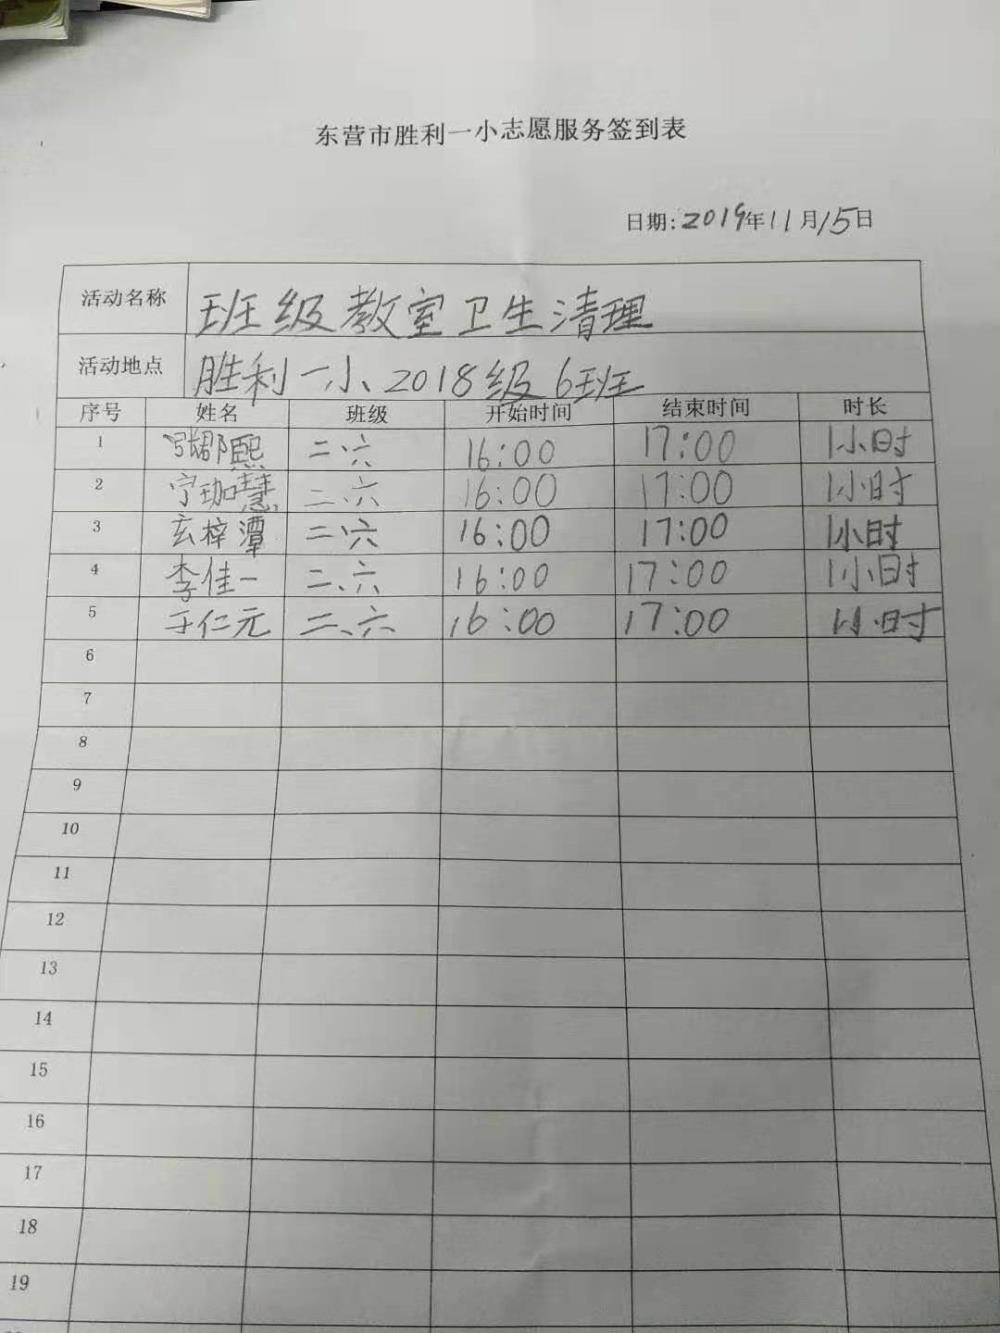 东营市胜利一小志愿服务签到表
日期:2019年11月15日
活动名称 班级教室卫生清理
活动地点 胜利一小、2018级6班
序号 姓名 班级 开始时间 结束时间 时长
1 二.六 16:00 17:00 1小时
2 宁珈慧 二.六 16:00 17:00 1小时
3 玄梓潭 二.六 16:00 17:00 1小时
4 李佳一 二、六 16:00 17:00 1小时
5 于仁元 二、六 16:00 17:00 1小时
6
7
8
9
10
11
12
13
14
15
16
17
18
19